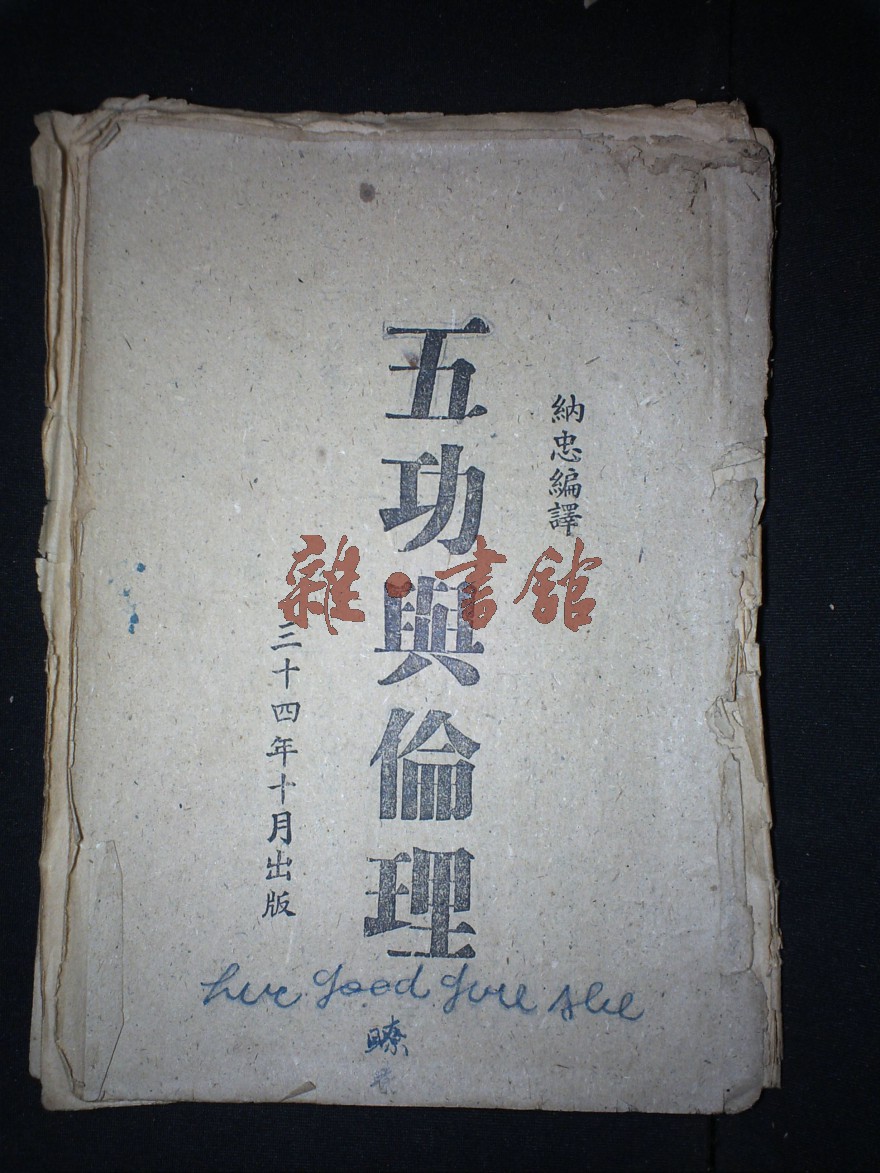 納忠編譯
五功與倫理
三十四年十月出版
雜·書館
good
瞭